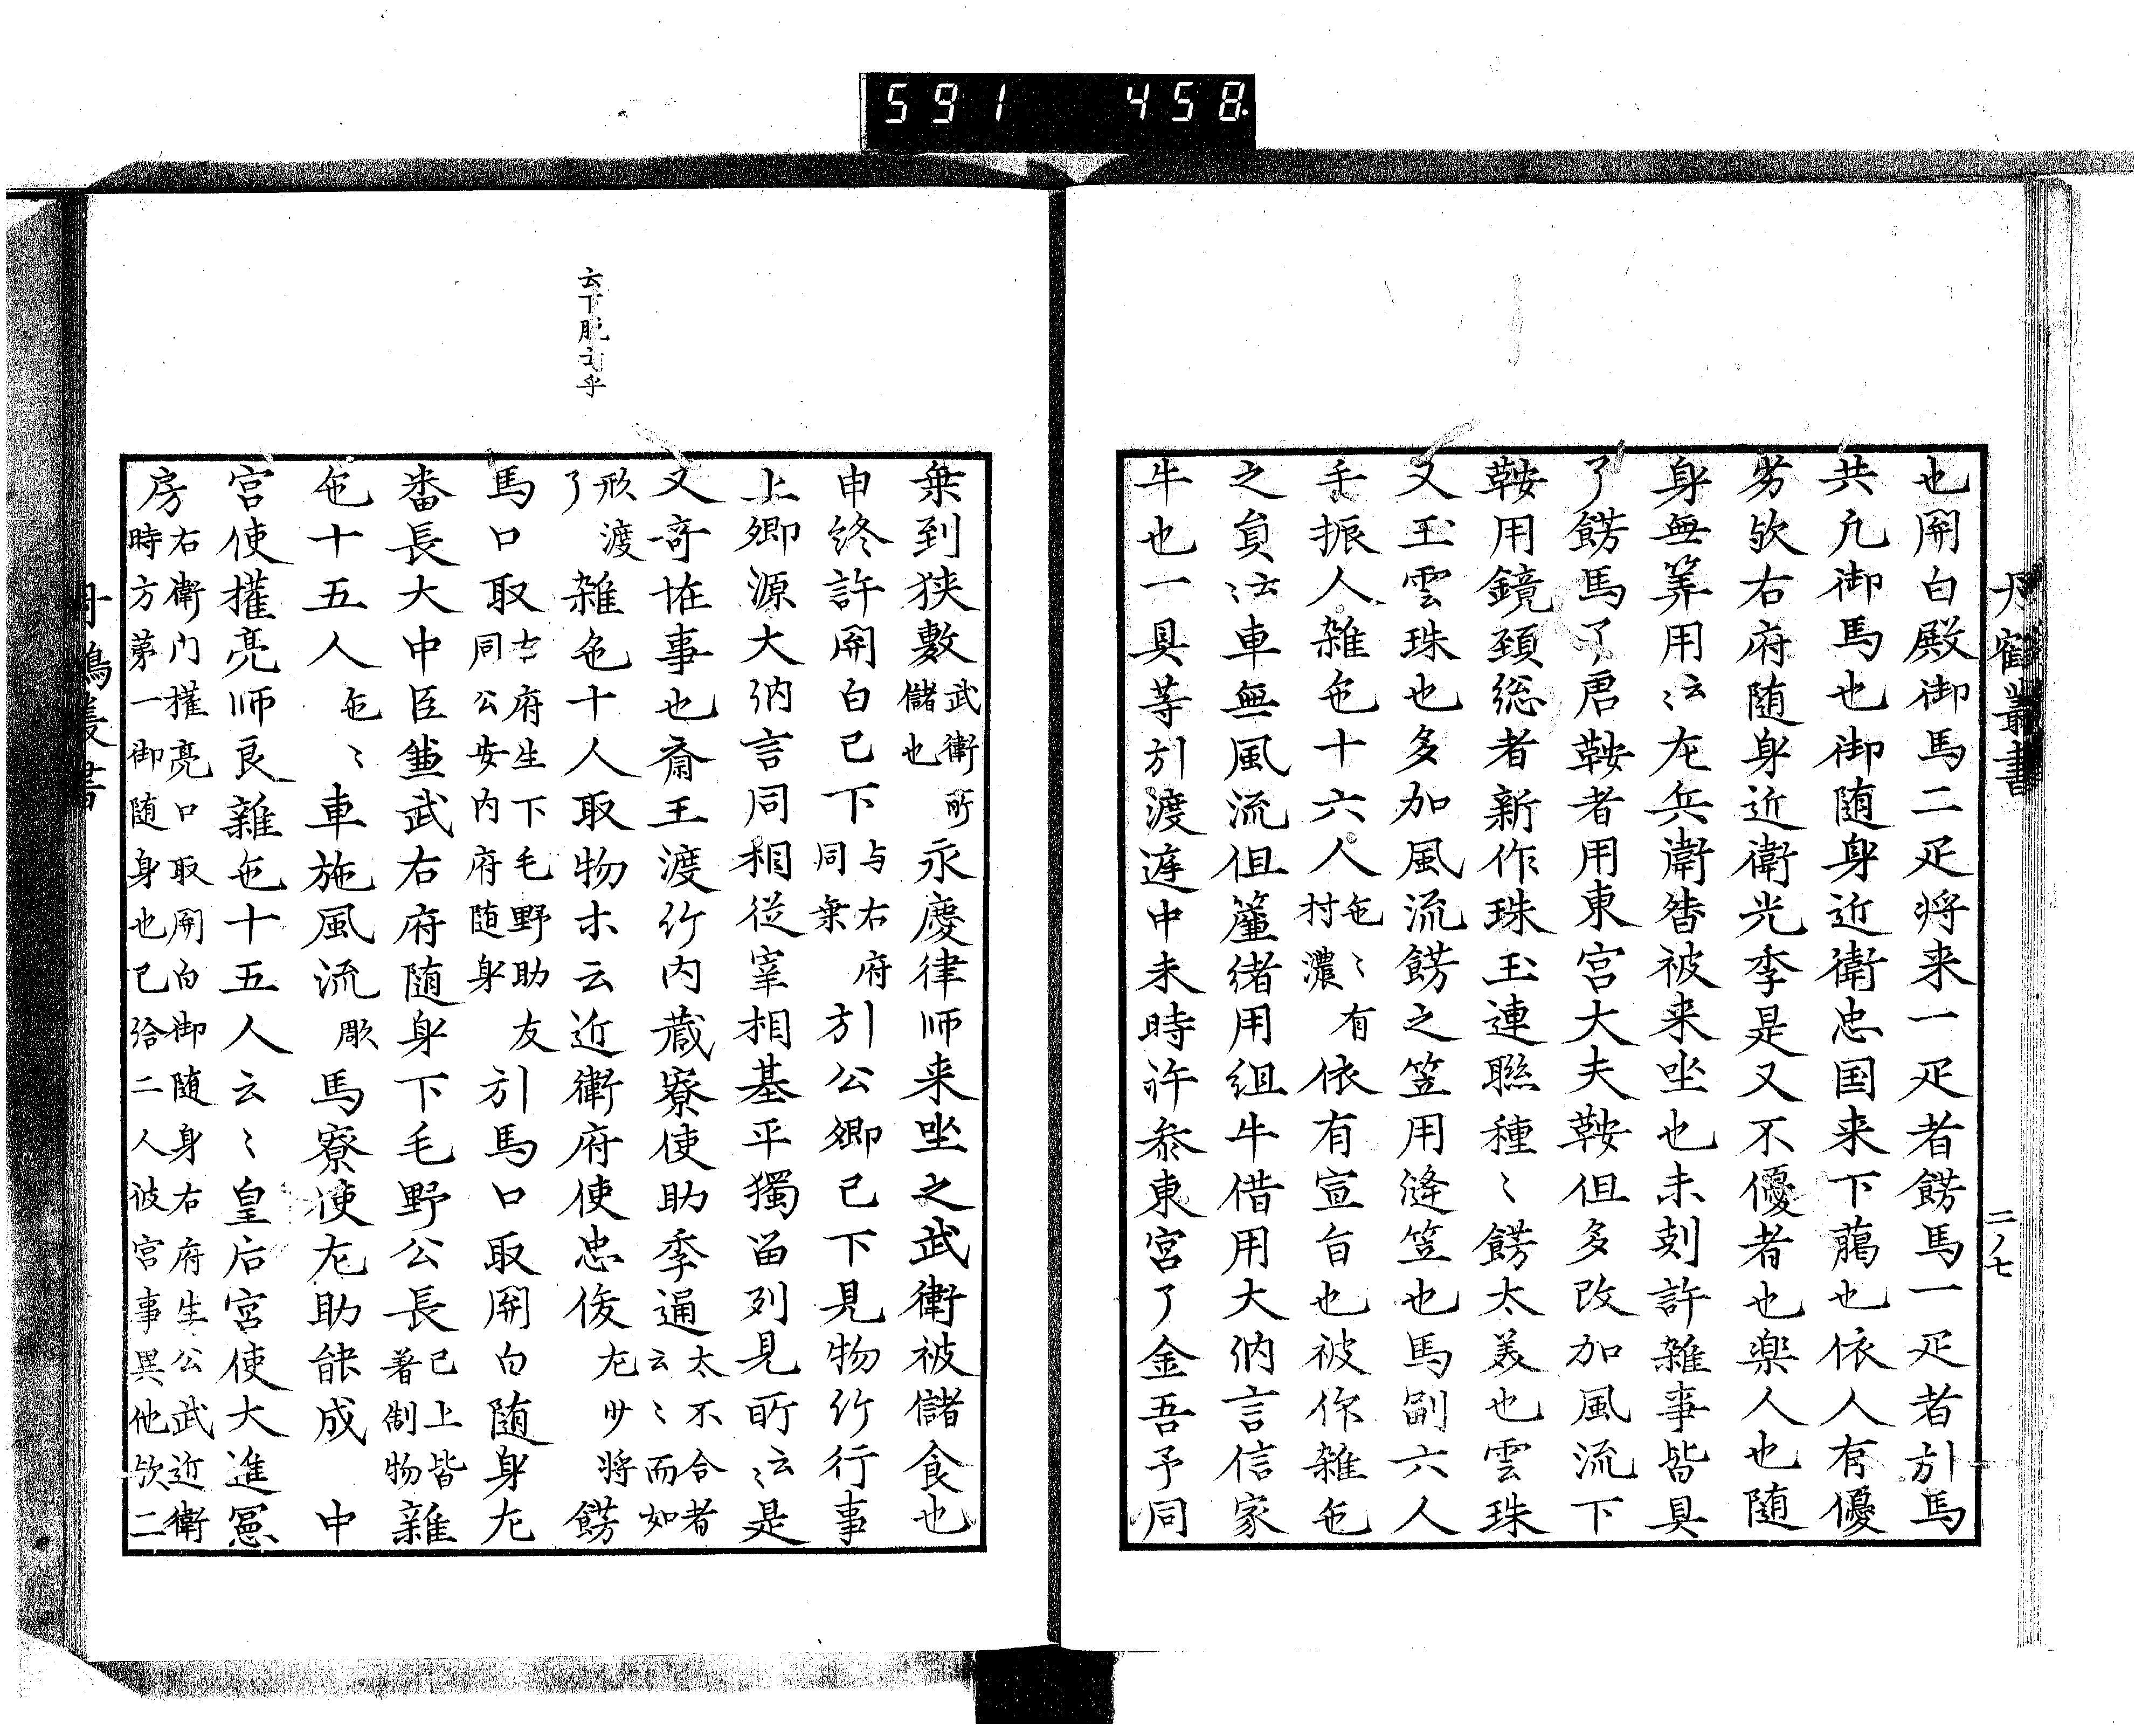 591 458
丹鶴叢書
二ノ七
也関白殿御馬二疋将来一疋者餝馬一疋者引馬
共凡御馬也御随身近衛忠国来下﨟也依人有優
劣欤右府随身近衛光季是又不優者也楽人也随
身無筭用云々左兵衛督被来坐也未刻許雑事皆具
了餝馬了唐鞍者用東宮大夫鞍但多改加風流下
鞍用鏡頚総者新作珠玉連聯種〻餝太美也雲珠
又玉雲珠也多加風流餝之笠用縫笠也馬副六人
手振人雑色十六人色〻有村濃依有宣旨也被作雑色
之員云々車無風流但簾緒用組牛借用大納言信家
牛也一具等引渡遅申未時許参東宮了金吾予同
云下脱云乎
乗到狭敷武衛所儲也永慶律師来坐之武衛被儲食也
申終許関白已下与右府同乗引公卿已下見物行行事
上卿源大納言同相従宰相基平獨留列見所云々是
又奇恠事也斎王渡行内蔵寮使助季通太不合者云〻而如
形渡了雑色十人取物木云近衛府使忠俊左少将餝
馬口取右府生下毛野助友同公安内府随身引馬口取関白随身左
番長大中臣兼武右府随身下毛野公長已上皆着制物雑
色十五人色〻車施風流彫馬寮使左助能成中
宮使権亮師良雑色十五人云〻皇后宮使大進冨
房右衛门権亮口取関白御随身右府生公武近衛時方第一御随身也已給二人被宮事異他欤二